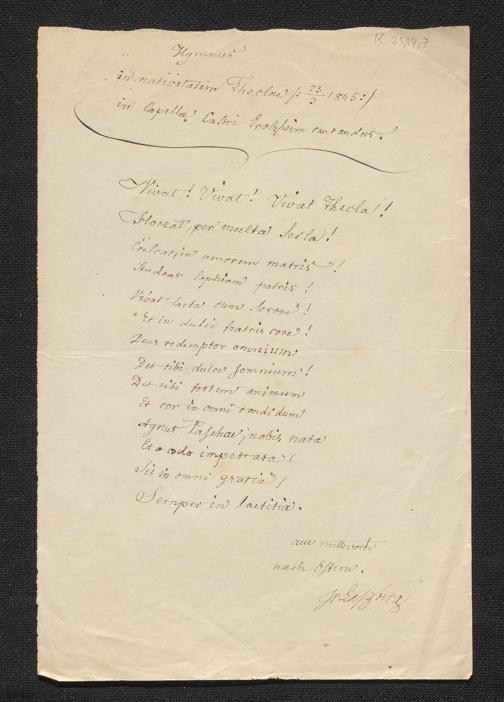 K. 2519d7
Hymnus
in nativitatim Theclae /: 23/3 1845 :/
in Capella Castri Erolzheim cantandus!
Vivat! Vivat! Vivat Thecla!!
Floreat per multa Secla!
in amorem matris!
Studeat captuam patris!
Vivat laeta cum Sorore!
Et in dulci fratris core!
Deus redemptor omnium
Det tibi dulce somnium!
Det tibi fortem animum
Et cor in omni candidum
Agnus Paschae, nobis nata
Et a deo impetrata!
Sis in omni gratia!
Semper in laetitia.
am mittwoch
nach Ostern.